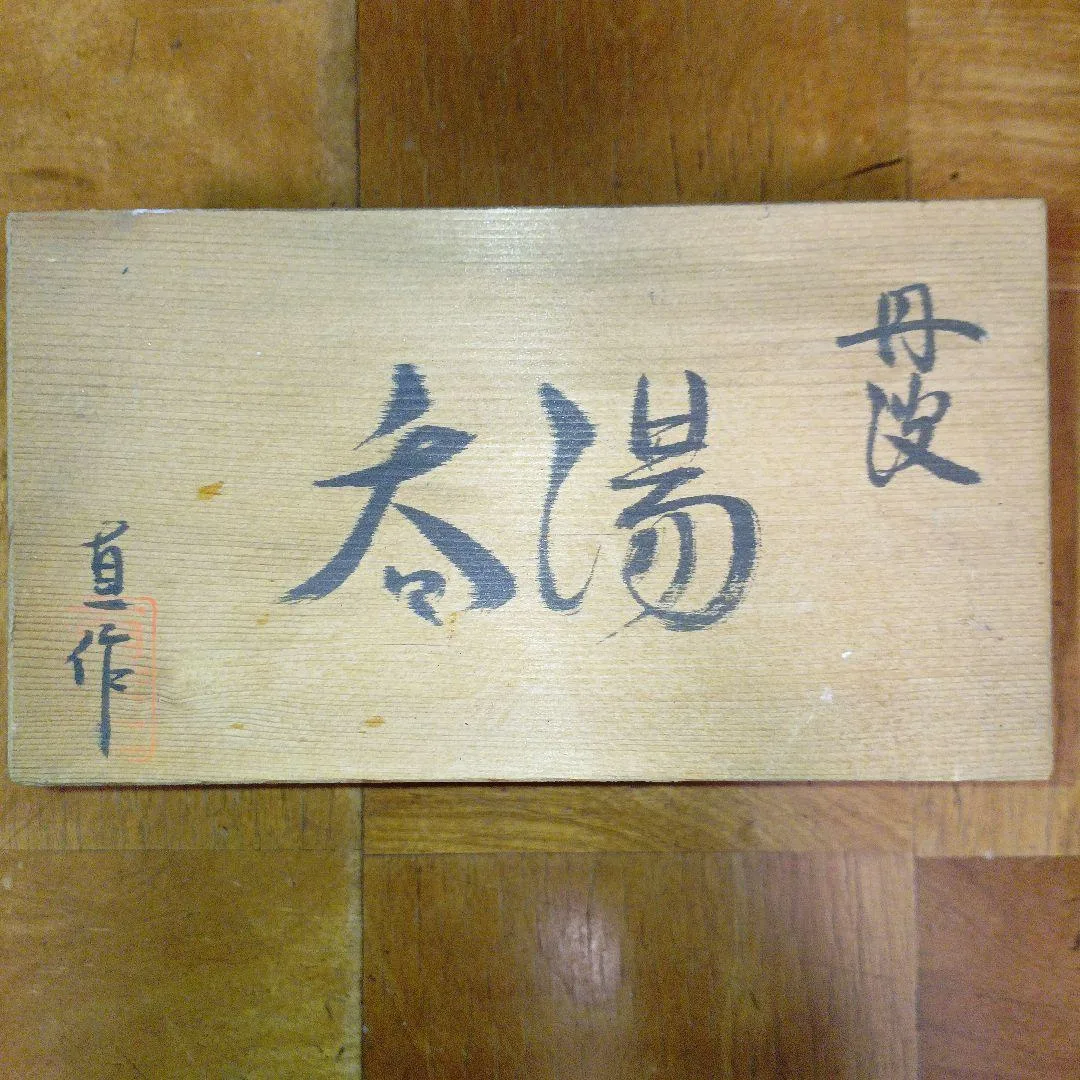 丹波
湯呑
直作